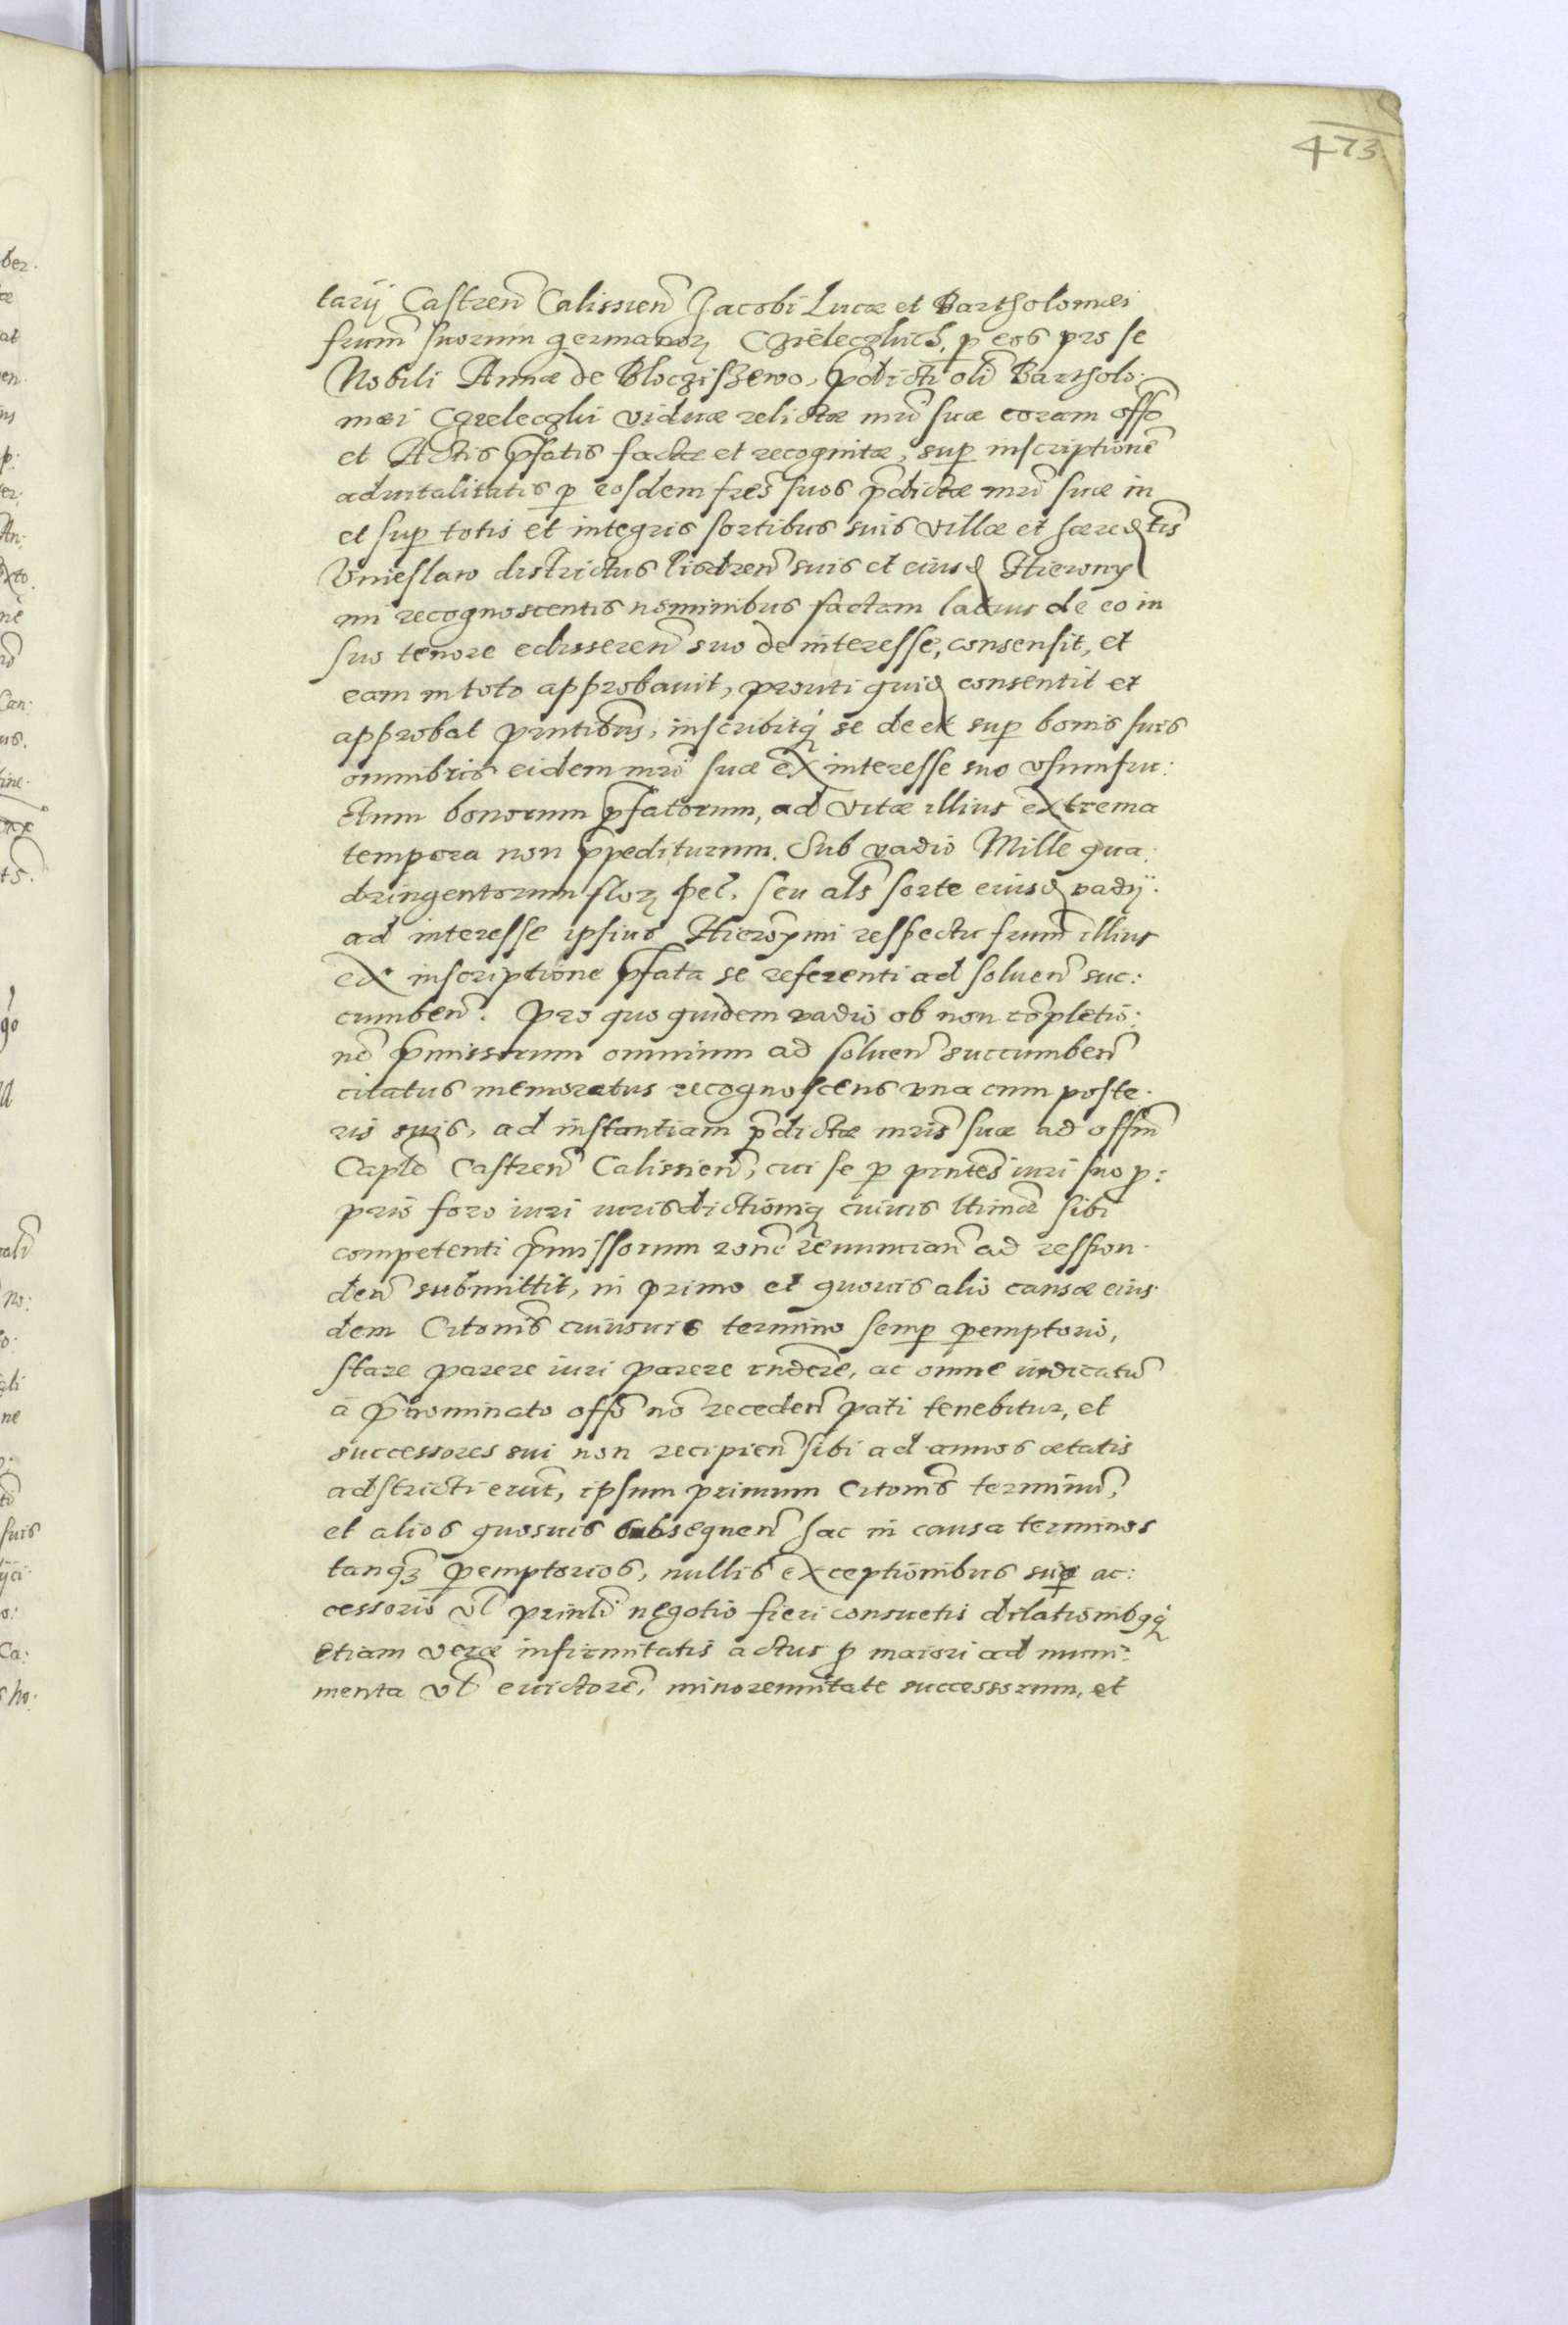 473
tarij Castren̄ Calissien̄ Jacobi Lucæ et Bartholomæi
frum̄ suorum germanoꝝ Czieleczkich, ꝑ eos pro se
Nobili Annæ de Bloczisʒewo, p̄dicti oli͂ Bartholo:
mæi Czeleczkii viduæ relictæ mr̄i suæ coram off͂o
et Actis p̄fatis factæ et recognitæ, suꝑ inscriptione͂
aduitalitatis ꝑ eosdem fres̄ suos p̄dictæ mr̄i suæ in
et suꝑ totis et integris sortibus suis villæ et hæredt͂is
Vnieslaw districtus suis et eiusd Hierony
mi recognoscentis nominibus factam latius de eo in
suo tenore edisseren̄ suo de interesse, consensit, et
eam in toto approbauit, prouti quid consentit et
approbat pr̄ntibus, inscribitq́ꝫ se de et suꝑ bonis suis
omnibus eidem mr̄i suæ ex interesse suo vsumfru:
ctum bonorum p̄fatorum, ad vitæ illius extrema
tempora non p̄pediturum. Sub vadio Mille qua:
dringentorum floꝝ pel. seu als̄ sorte eiusd vadij.
ad interesse ipsius Hieronymi respectu frum̄ illius
ex inscriptione p̄fata se referenti ad soluen̄ suc:
cumben̄. Pro quo quidem vadio ob non co͂pletio:
ne͂ p̄missorum omnium ad soluen̄ succumben̄
citatus memoratus recognoscens vna cum poste:
ris suis, ad instantiam p̄dictæ mris̄ suæ ad offm̄
Capl͂e Castren̄ Calissien̄, cui se ꝑ pr̄ntes iuri suo ꝓ:
prio foro iuri iurisdictioniq́ꝫ cuiuis sibi
competenti p̄missorum ro͂ne renuncian̄ ad respon:
den̄ submittit, in primo et quouis alio causæ eius:
dem Cit͂onis cuiusuis termino semꝑ ꝑemptorio,
stare parere iuri parere rn̄dere, ac omne iudicatu͂
à p̄nominato off͂o no͂ receden̄ pati tenebitur, et
successores sui non recipien̄ sibi ad annos ætatis
adstricti erūt, ipsum primum Cit͂onis terminu͂,
et alios quosuis subsequen̄ hac in causa terminos
tanqꝫ ꝑemptorios, nullis exceptionibus suꝑ ac:
cessorio vl̄ prinl͂i negotio fieri consuetis dilationibꝰq́ꝫ
etiam veræ infirmitatis actus ꝓ maiori ad muni:
menta vl̄ euictore͂, minorennitate successorum, et